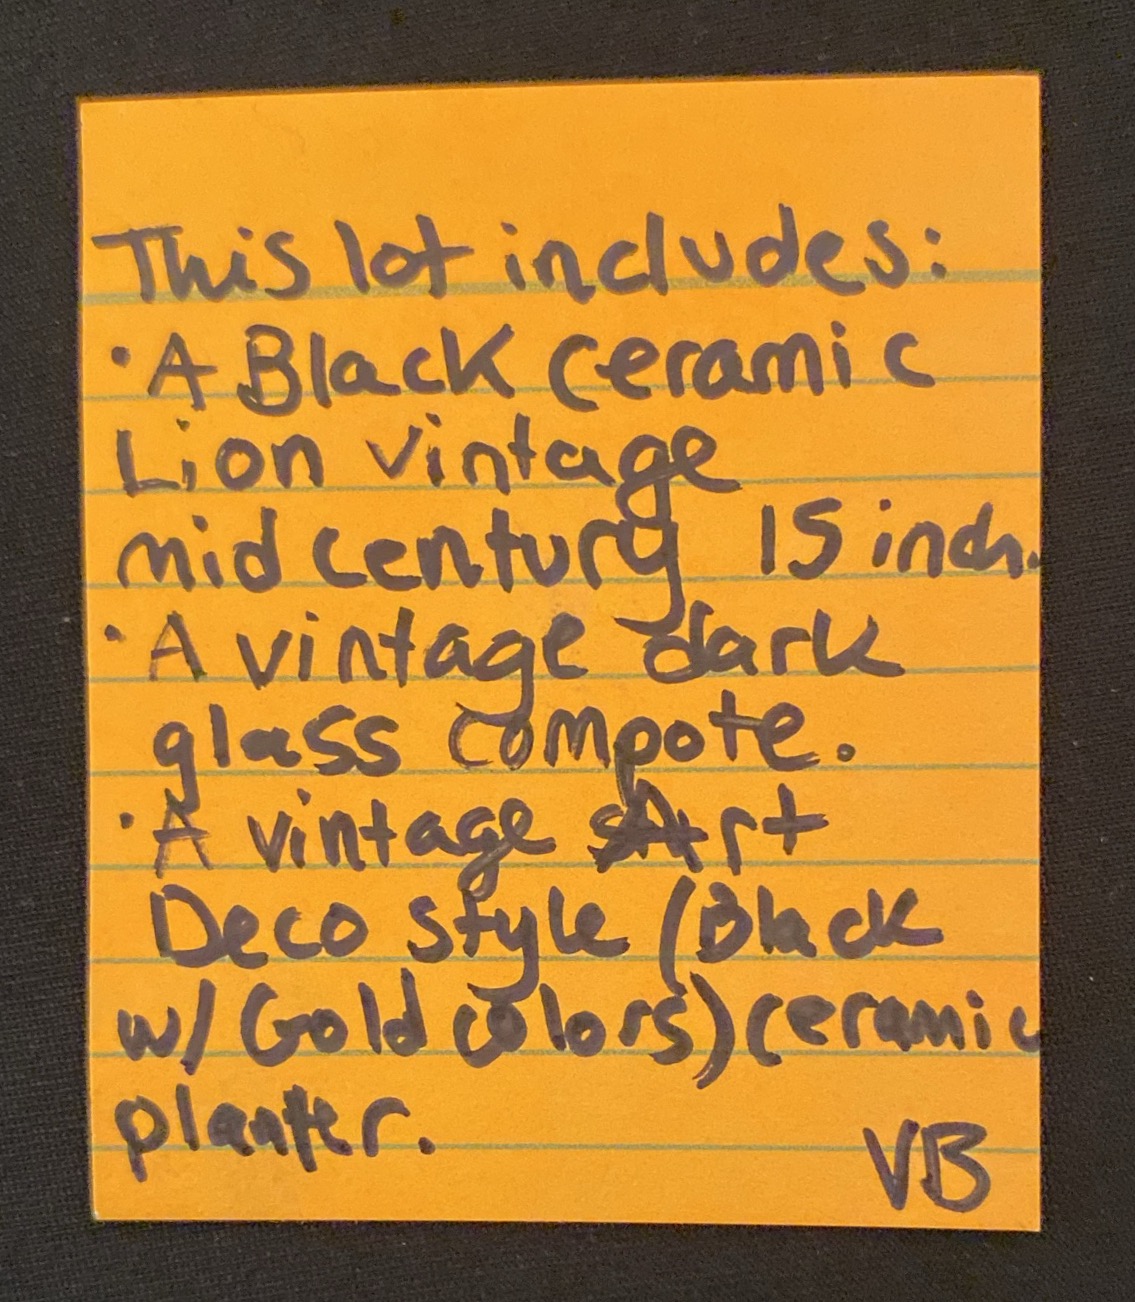 This lot includes:
· A Black ceramic
Lion vintage
mid century 15 inch.
· A vintage dark
glass compote.
· A vintage Art
Deco style (Black
w/ Gold colors) ceramic
planter.
VB